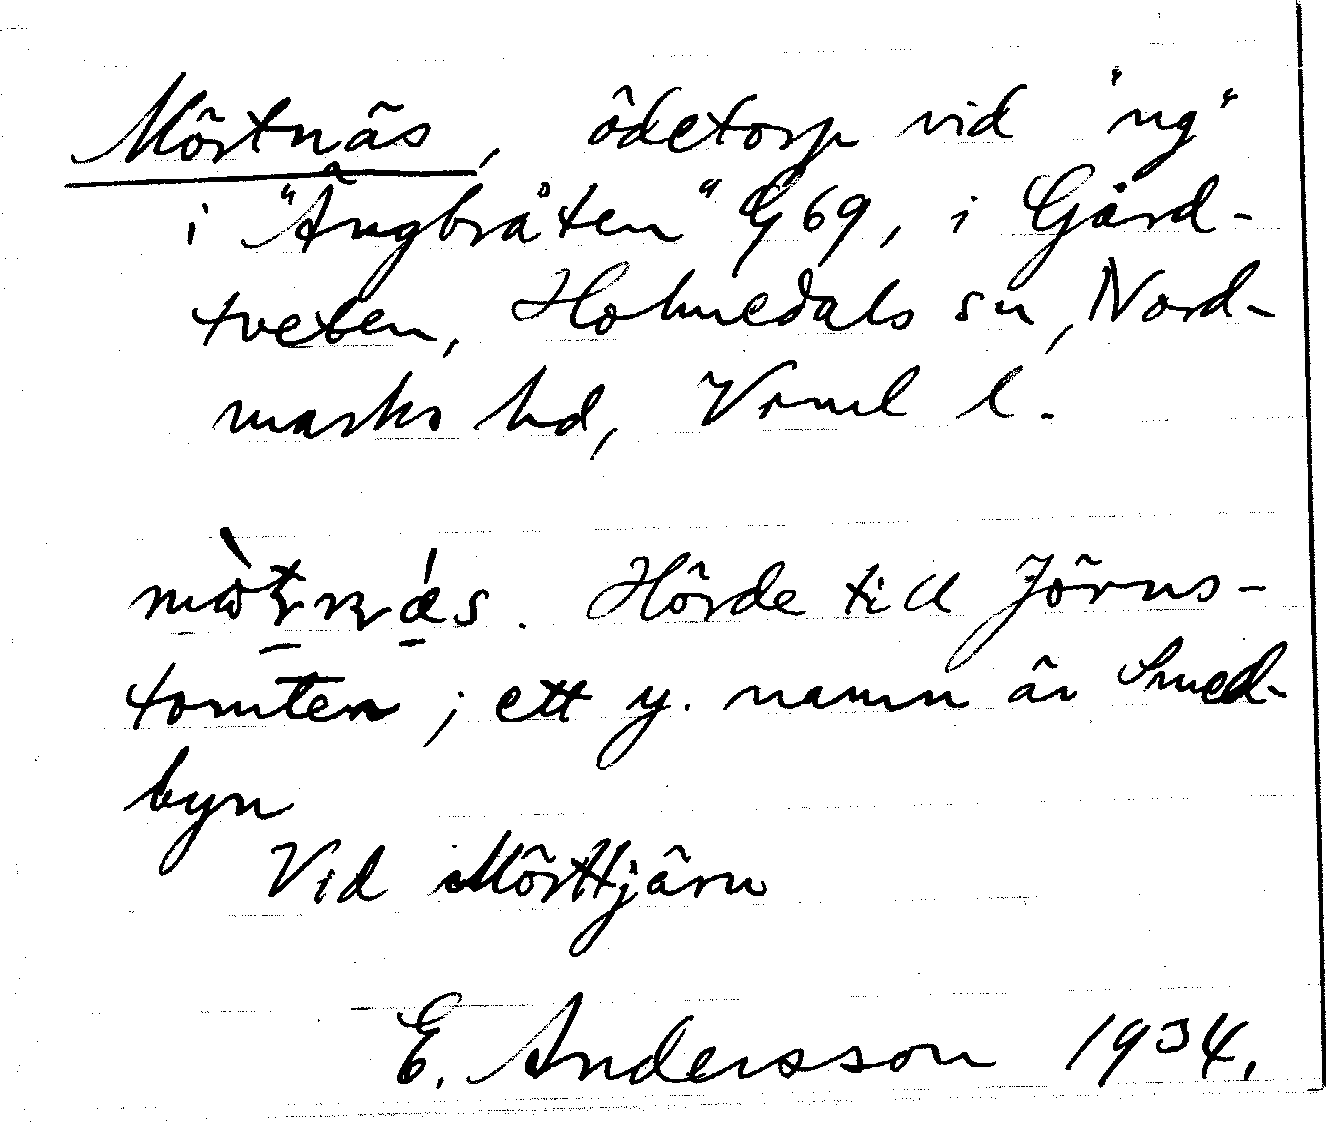 Mörtnäs, ödetorp vid "ng"
i "Ängbråten" G 69, i Gård-
tveten, Holmedals sn, Nord-
marks hd, Vrml l.
mòtnǽs. Hörde till Jörns-
tomten; ett y. namn är Smed-
byn
Vid Mörttjärn
E. Andersson 1934.